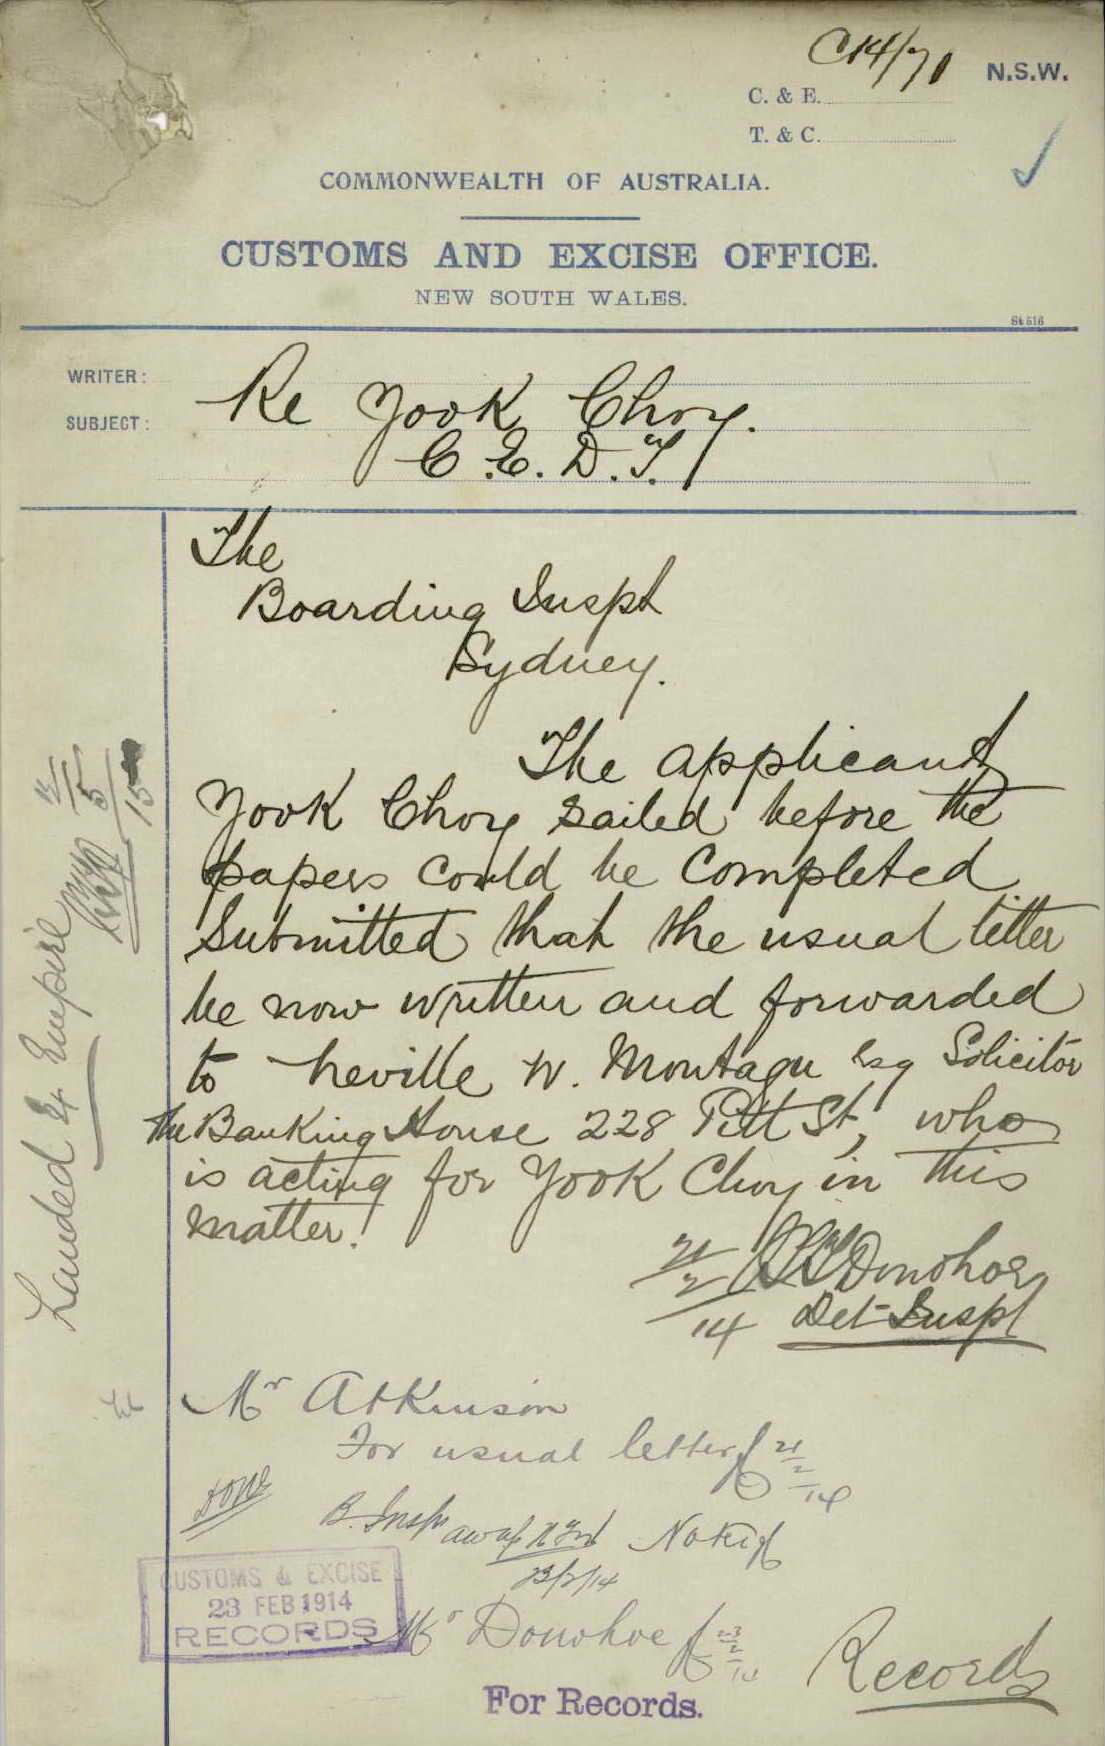 C14/71
N.S.W.
C. & E.
T. & C.
COMMONWEALTH OF AUSTRALIA.
CUSTOMS AND EXCISE OFFICE.
NEW SOUTH WALES.
St 516
WRITER:
SUBJECT:
Re Yook Choy.
C.E.D.T.
The
Boarding Inspt
Sydney.
The applicant
Yook Choy sailed before the
papers could be completed
Submitted that the usual letter
be now written and forwarded
to Neville W. Montagu Esq Solicitor
The Banking House 228 Pitt St, who
is acting for Yook Choy in this
matter.
21/2/14
Donohoe
Det-Inspt
Landed Ex Empire
5
15
Mr Atkinson
For usual letter
21/2/14
DONE
B. Inspr
Noted
23/2/14
CUSTOMS & EXCISE
23 FEB 1914
RECORDS
Mr Donohoe
23/2/14
Records
For Records.